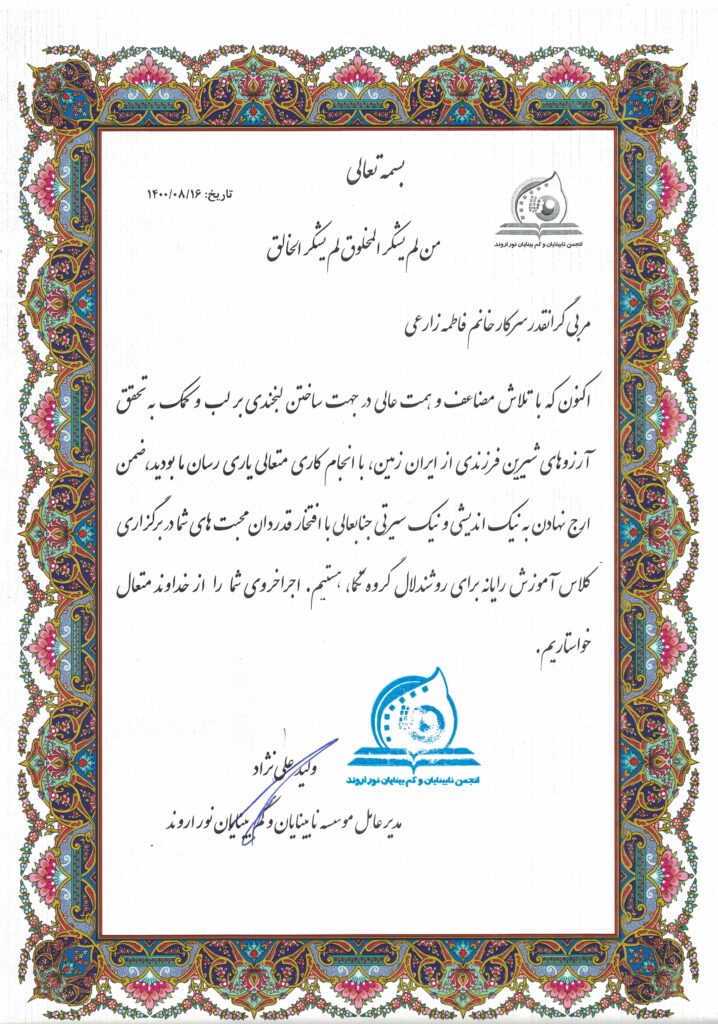 بسمه تعالی
تاریخ: ۱۴۰۰/۰۸/۱۶
انجمن نابینایان و کم بینایان نور اروند
من لم یشکر المخلوق لم یشکر الخالق
مربی گرانقدر سرکار خانم فاطمه زارعی
اکنون که با تلاش مضاعف و همت عالی در جهت ساختن لبخندی بر لب و کمک به تحقق
آرزوهای شیرین فرزندی از ایران زمین، با انجام کاری متعالی یاری رسان ما بودید،ضمن
ارج نهادن به نیک اندیشی و نیک سیرتی جنابعالی با افتخار قدردان محبت های شما در برگزاری
کلاس آموزش رایانه برای روشندلال گروه نما، هستیم. اجراخروی شما را از خداوند متعال
خواستاریم.
انجمن نابینایان و کم بینایان نور اروند
ولید علی نژاد
مدیر عامل موسسه نابینایان و کم بینایان نور اروند